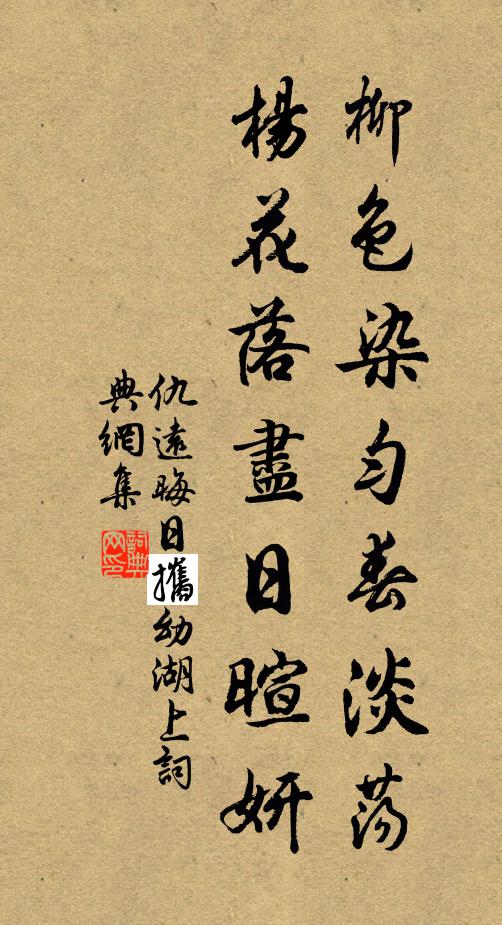 柳色染勻春淡蕩
楊花落盡日暄妍
仇遠晦日攜幼湖上詞
典網集
詞典
网印